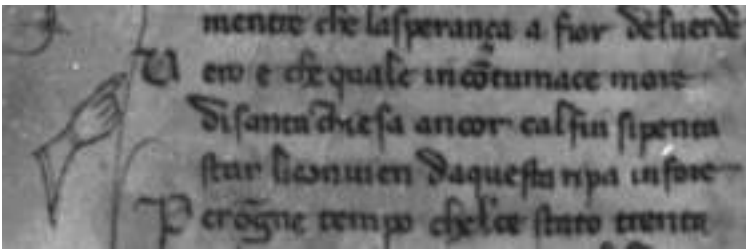 mentre che lasperança a fior deluerde
Vero e che quale incōtumace more
Disanta chiesa ancor cal fin sipenta
star li conuien daquesta ripa infore
Perogne tempo chelce stato trenta